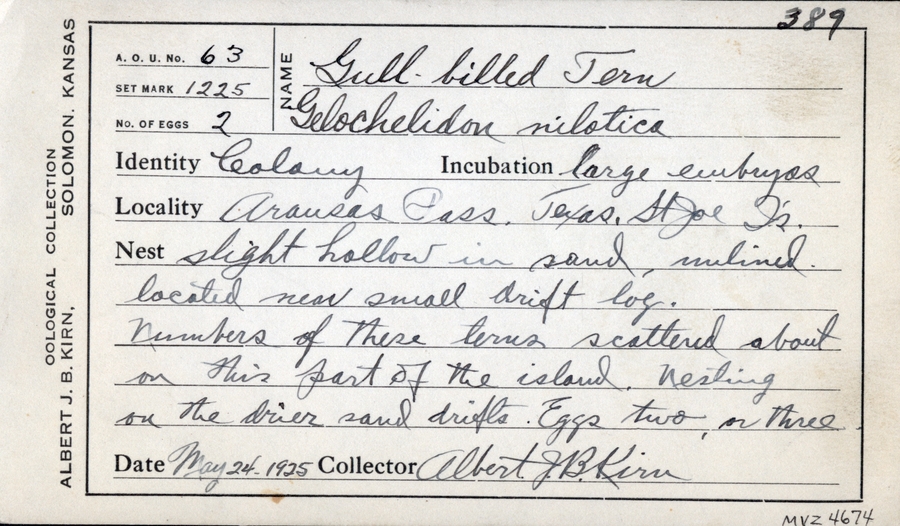 389
A. O. U. No. 63
SET MARK 1225
No. OF EGGS 2
NAME Gull-billed Tern
Gelochelidon nilotica
Identity Colony Incubation large embryos
Locality Aransas Pass, Texas. St Joe Is.
Nest slight hollow in sand, unlined.
located near small drift log.
Numbers of these terns scattered about
on this part of the island. Nesting
on the drier sand drifts. Eggs two, or three.
Date May 24-1925 Collector Albert J. B. Kirn
OOLOGICAL COLLECTION
ALBERT J. B. KIRN, SOLOMON. KANSAS
MVZ 4674